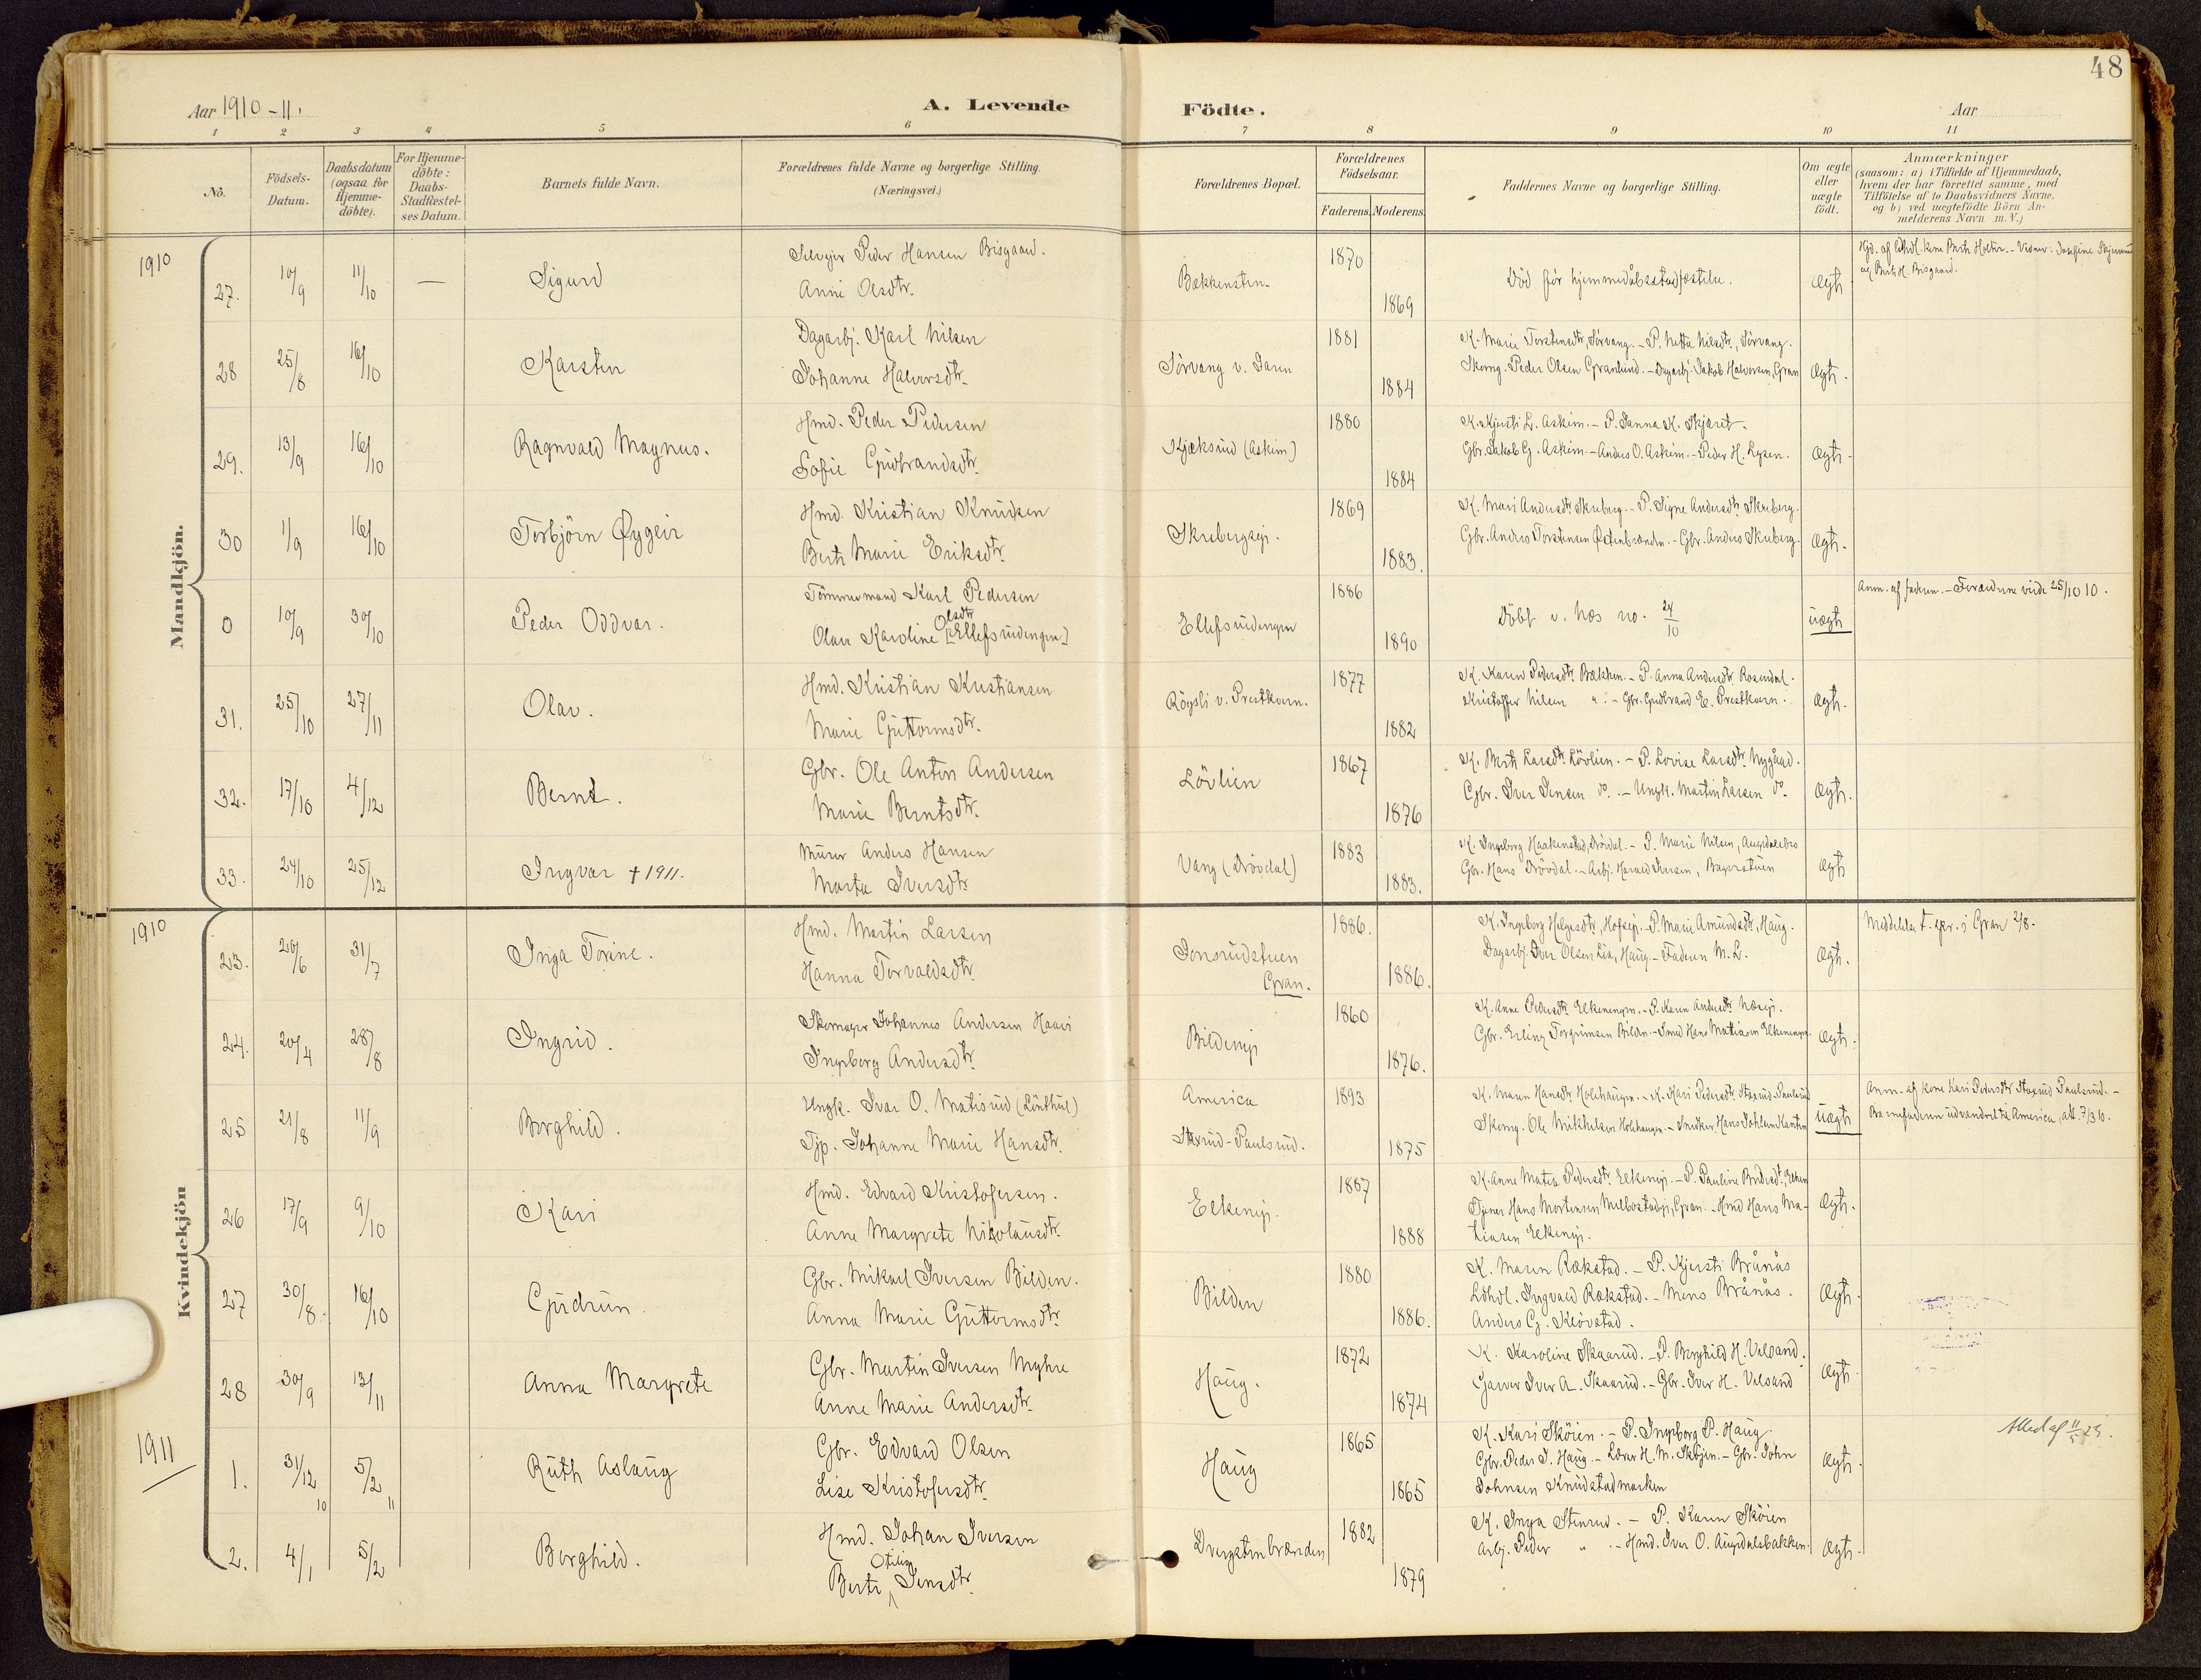 48
Aar 1910-11.
A. Levende Födte.
Aar
1 2 3 4 5 6 7 8 9 10 11
No.
Födsels-Datum.
Daabsdatum (ogsaa for Hjemme-döbte).
For Hjemme-döbte: Daabs-Stadfestel-ses Datum.
Barnets fulde Navn.
Forældrenes fulde Navne og borgerlige Stilling. (Næringsvei.)
Forældrenes Bopæl.
Forældrenes Födselsaar.
Faderens. Moderens.
Faddernes Navne og borgerlige Stilling.
Om ægte eller uægte födt.
Anmærkninger
(saasom: a) i Tilfælde af Hjemmedaab,
hvem der har forrettet samme, med
Tilföielse af to Daabsvidners Navne.
og b) ved uægtefödte Börn An-
melderens Navn m. V.)
Mandkjön.
1910
27. 10/9 11/10 — Sigurd
Selveier Peder Hansen Bisgaard.
Anne Olsdtr.
Bakkensten. 1870 1869
Död för hjemmedåbsstadfæstelse. ægte
28 25/8 16/10 Karsten
Dagarbj. Karl Nilsen
Johanne Halvorsdtr.
Sörvang v. Jaren 1881 1884
K. Marie Torstensdtr, Sörvang. - P. Nilsdtr, Sörvang.
Skomg. Peder Olsen Granlund. - Dagarbj. Jakob Halvorsen, Gran ægte.
29. 13/9 16/10 Ragnvald Magnus.
Hmd. Peder Pedersen
Sofie Gudbrandsdtr.
Kjæksrud (Askim) 1880 1884
K. Kjersti L. Askim. - P. Hanna K. Skjæret.
Gbr. Jakob G. Askim. - Anders O. Askim. - Peder H. Lysen. ægte.
30 1/9 16/10 Torbjörn Øygeir
Hmd. Kristian Knudsen
Berte Marie Eriksdtr.
Skrubergeje. 1869 1883.
K. Mari Andersdtr. Skruberg. - P. Signe Andersdtr. Skruberg.
Gbr. Anders Torstensen Østenbrænden. - Gbr. Anders Skruberg. ægte.
0 10/9 30/10 Peder Oddvar.
Tömmermand Karl Pedersen
Olava Karoline Olsdtr [Ellefsrudengen]
Ellefsrudengen 1886 1890
Döbt v. Næs no. 24/10
uægte
Anm. af faderen. - Forældrene viede 25/10 10.
31. 25/10 27/11 Olav.
Hmd. Kristian Kristiansen
Marie Guttormsdtr.
Röysli v. Prestkvern. 1877 1882
K. Karen Pedersdtr. Bakken. - P. Anna Andersdtr. Rosendal.
Kristoffer Nilsen " - Gbr. Gudbrand E. Prestkvern. ægte.
32. 17/10 4/12 Bernt.
Gbr. Ole Anton Andersen
Marie Berntsdtr.
Lövlien 1867 1876
K. Berth Larsdtr. Lövlien. - P. Lovise Larsdtr. Nygård.
Gbr. Iver Jensen do. - Ungk. Martin Larsen do. ægte.
33. 24/10 25/12 Ingvar † 1911.
Murer Anders Hansen
Marta Iversdtr
Vang (Dövdal) 1883 1883.
K. Ingeborg Haakenstad, - P. Marie Nilsen,
Gbr. Hans - Arb. Harald Iversen, ægte
Kvindekjön
1910
23. 20/6 31/7 Inga Torine.
Hmd. Martin Larsen
Hanna Torvaldsdtr.
Jonsrudstuen Gran. 1886. 1886.
K. Ingeborg Helgesdtr, - P. Marie Amundsdtr, Haug.
Dagarbj. Iver Olsen Lia, Haug. - Faderen M. L. ægte.
Meddelelse t. spr. i Gran 2/8.
24. 20/4 28/8 Ingrid.
Skomager Johannes Andersen Haavi
Ingeborg Andersdtr.
Bildeneje 1860 1876.
K. Anne Pedersdtr. Elkenengen. - P. Karen Andersdtr.
Gbr. Erling Torgrimsen Bilden. - Smed Hans Matiasen Elkenengen. ægte.
25 21/8 11/9 Borghild.
Ungk. Ivar O. Matisrud (Linthul)
Tjp. Johanne Marie Hansdtr.
America
Staxrud-Paulsrud. 1893 1875
K. Maren Hansdtr. Holehaugen. - K. Kari Pedersdtr. Staxrud-Paulsrud
Skomg. Ole Mikkelsen Holehaugen. - Snedker Hans Johlsen Kanten uægte
Anm. af kone Kari Pedersdtr Staxrud Paulsrud. -
Barnefaderen udvandret til America, att. 7/3 10.
26 17/9 9/10 Kari
Hmd. Edvard Kristofersen.
Anne Margrete Nikolausdtr.
Elkeneje. 1887 1888
K. Anne Matea Pedersdtr. Elkeneje. - P. Pauline Elken
Tjener Hans Mortensen Gran. - Hmd Hans Ma-
tiasen Elkeneje. ægte.
27 30/8. 16/10 Gudrun
Gbr. Mikael Iversen Bilden.
Anna Marie Guttormsdtr.
Bilden 1880 1886.
K. Maren Rækstad. - P. Kjersti Brånås
Ldhdl. Ingvald Rækstad. - Mons Brånås.
Anders G. Klövstad. ægte.
28 30/9 13/11 Anna Margrete
Gbr. Martin Iversen Myhre
Anne Marie Andersdtr.
Haug. 1872 1874
K. Karoline Skaarud. - P. Borghild H. Velsand.
Garver Iver A. Skaarud. - Gbr. Iver H. Velsand ægte.
1911
1. 31/12 10 5/2 11 Ruth Aslaug
Gbr. Edvard Olsen
Lise Kristofersdtr.
Haug 1865 1865
K. Kari Sköien. - P. Ingeborg P. Haug
Gbr. Peder I. Haug. - Lærer H. M. Sköien. - Gbr. John
Johnsen Knudstadmarken ægte.
Attest af 11/5 25.
2. 4/1 5/2 Borghild.
Hmd. Johan Iversen
Berte Otilie Jensdtr.
Dvergstenbrænden 1882 1879
K. Inga Stenrud. - P. Karen Sköien
Arbj. Peder " - Hmd. Iver O. Augedalsbakken. ægte.